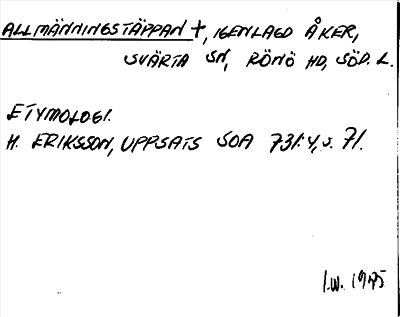 ALLMÄNNINGSTÄPPAN †, IGENLAGD ÅKER,
SVÄRTA SN, RÖNÖ HD, SÖD. L.
ETYMOLOGI.
H. ERIKSSON, UPPSATS SOA 731:4, s. 71.
I.W. 1975